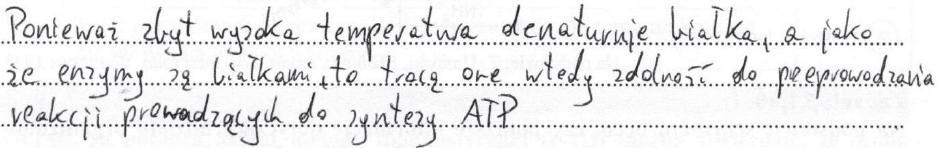 Ponieważ zbyt wyzoka temperatura denaturuje białka, a jako
że enzymy są białkami, to tracą one wtedy zdolność do peeprowadzania
reakcji prowadzących do syntezy ATP